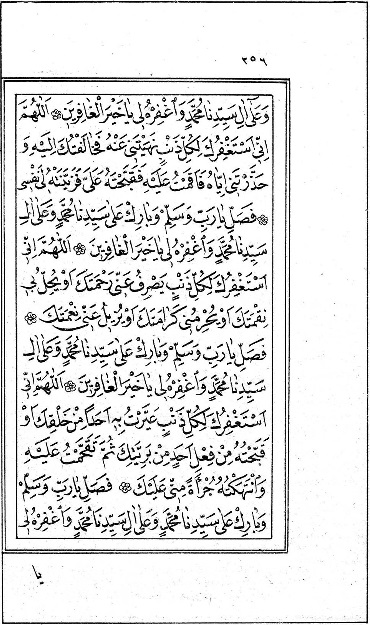 ٣٥٦
وَعَلٰى اٰلِ سَيِّدِنَا مُحَمَّدٍ وَاغْفِرْهُ لِى يَا خَيْرَ الْغَافِرِينَ ۞ اَللّٰهُمَّ
اِنِّى اَسْتَغْفِرُكَ لِكُلِّ ذَنْبٍ نَهَيْتَنِى عَنْهُ فَخَالَفْتُكَ اِلَيْهِ وَ
حَذَّرْتَنِى اِيَّاهُ فَاَقَمْتُ عَلَيْهِ فَقَبَّحْتَهُ عَلَىَّ فَزَيَّنَتْهُ لِى نَفْسِى
۞ فَصَلِّ يَا رَبِّ وَسَلِّمْ وَبَارِكْ عَلٰى سَيِّدِنَا مُحَمَّدٍ وَعَلٰى اٰلِ
سَيِّدِنَا مُحَمَّدٍ وَاغْفِرْهُ لِى يَا خَيْرَ الْغَافِرِينَ ۞ اَللّٰهُمَّ اِنِّى
اَسْتَغْفِرُكَ لِكُلِّ ذَنْبٍ يَصْرِفُ عَنِّى رَحْمَتَكَ اَوْ يُحِلُّ بِى
نِقْمَتَكَ اَوْ يَحْرِمُنِى كَرَامَتَكَ اَوْ يُزِيلُ عَنِّى نِعْمَتَكَ ۞
فَصَلِّ يَا رَبِّ وَسَلِّمْ وَبَارِكْ عَلٰى سَيِّدِنَا مُحَمَّدٍ وَعَلٰى اٰلِ
سَيِّدِنَا مُحَمَّدٍ وَاغْفِرْهُ لِى يَا خَيْرَ الْغَافِرِينَ ۞ اَللّٰهُمَّ اِنِّى
اَسْتَغْفِرُكَ لِكُلِّ ذَنْبٍ عَيَّرْتُ بِهِ اَحَدًا مِنْ خَلْقِكَ اَوْ
قَبَّحْتُهُ مِنْ فِعْلِ اَحَدٍ مِنْ بَرِيَّتِكَ ثُمَّ تَقَحَّمْتُ عَلَيْهِ
وَانْتَهَكْتُهُ جُرْأَةً مِنِّى عَلَيْكَ ۞ فَصَلِّ يَا رَبِّ وَسَلِّمْ
وَبَارِكْ عَلٰى سَيِّدِنَا مُحَمَّدٍ وَعَلٰى اٰلِ سَيِّدِنَا مُحَمَّدٍ وَاغْفِرْهُ لِى
يا